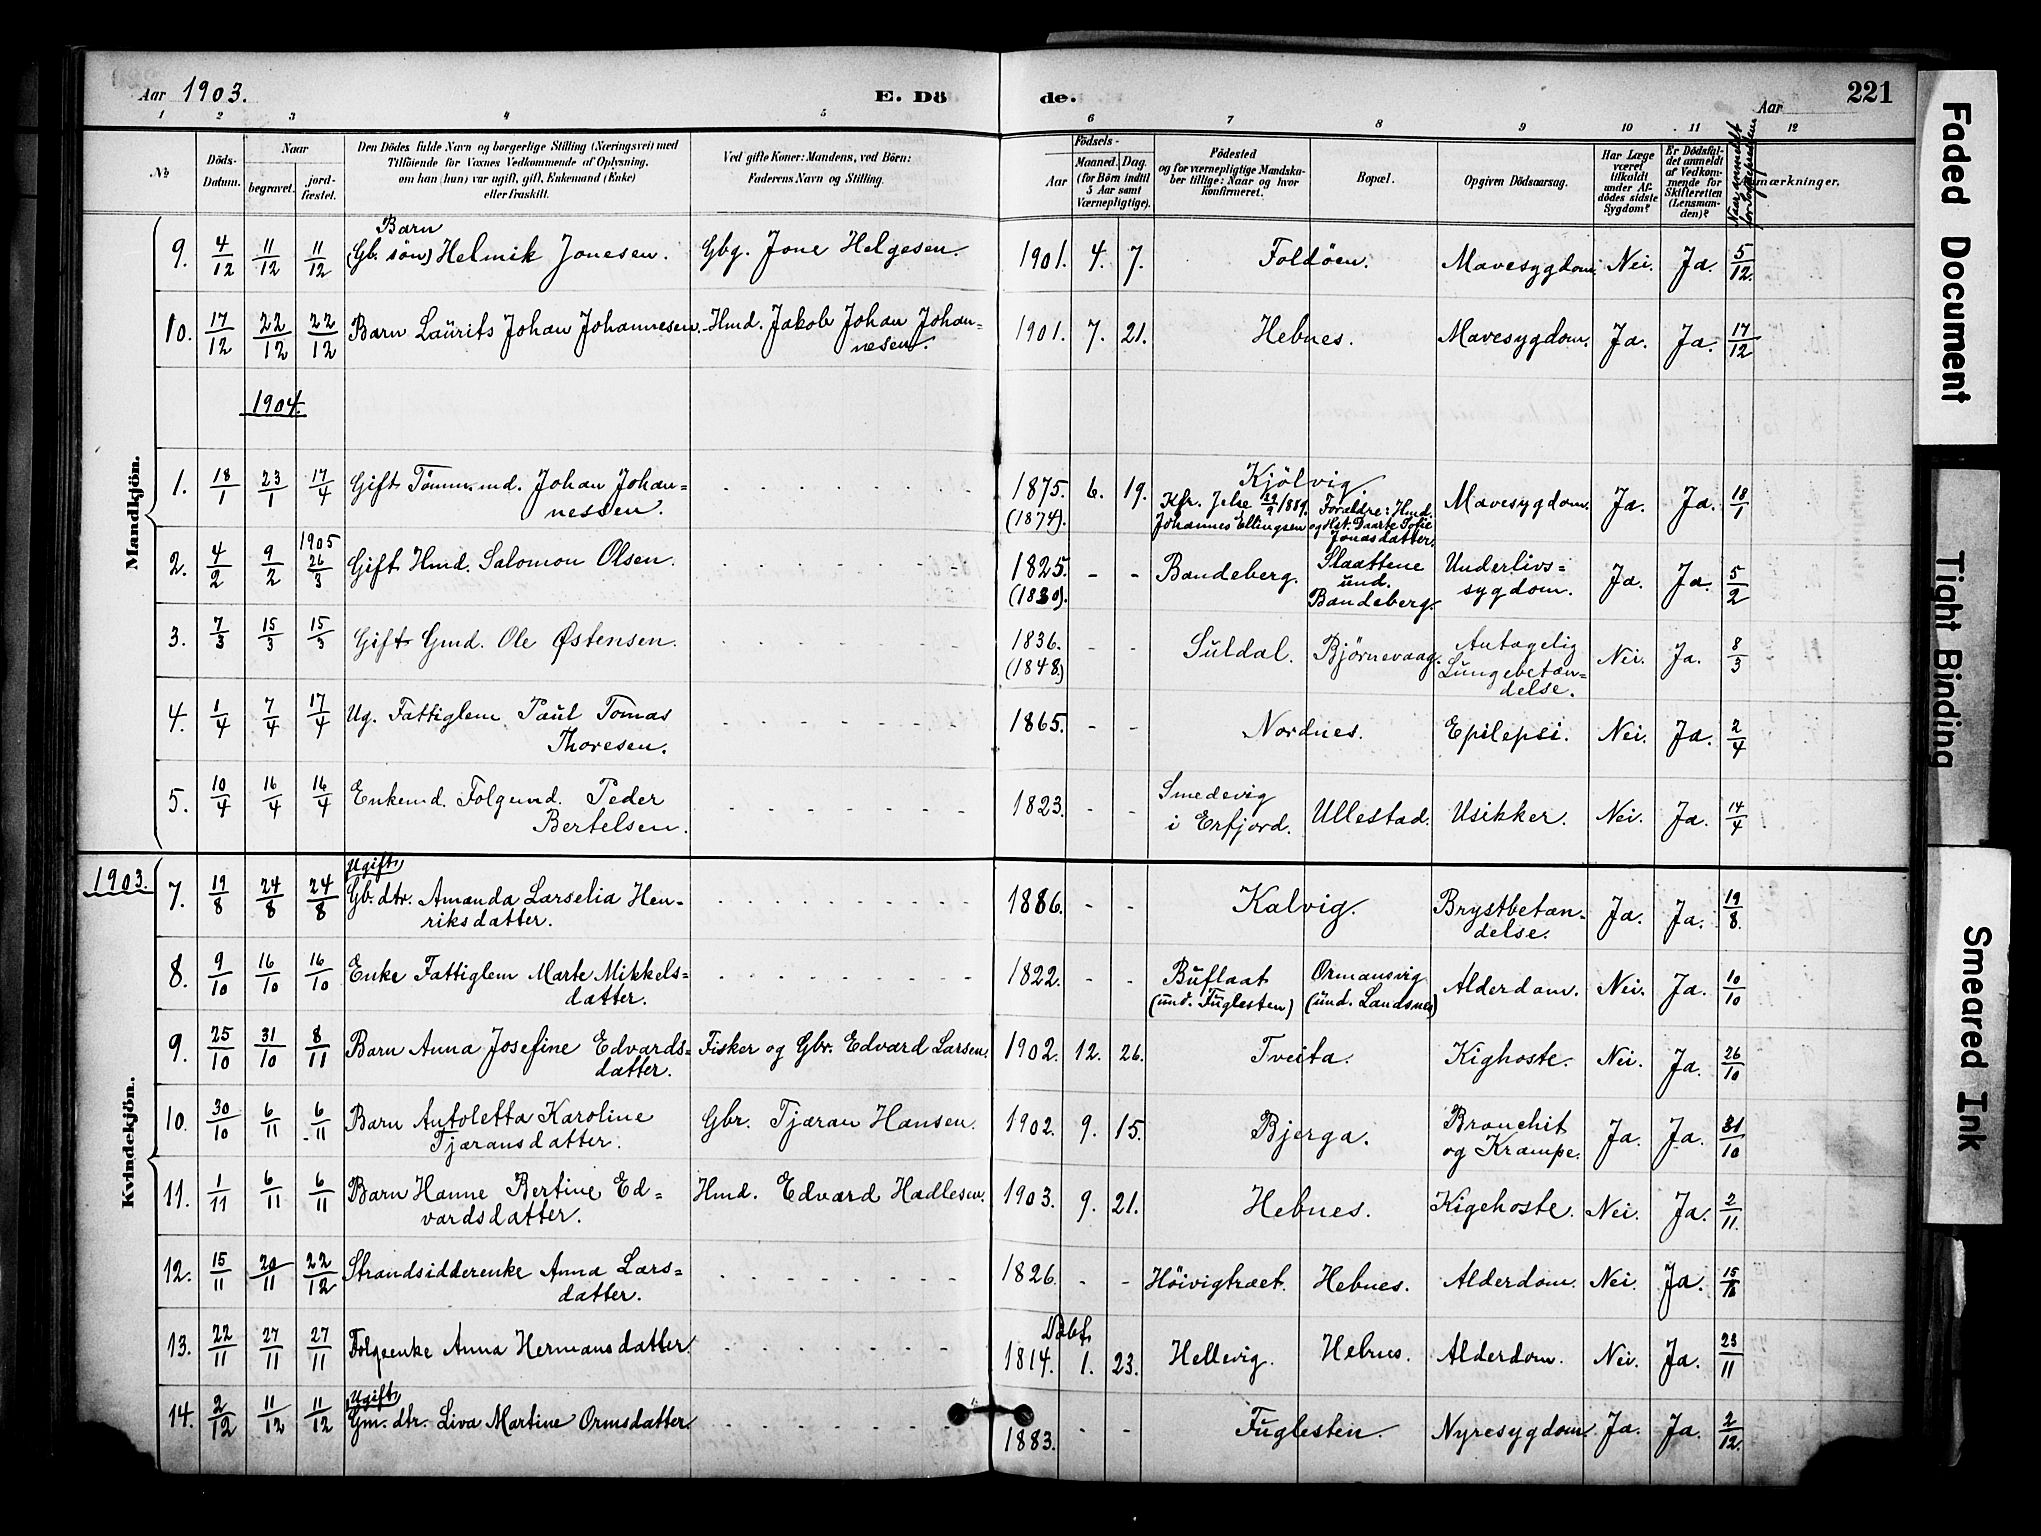 Aar 1903. E. Dö de. Aar 221
1 2 3 4 5 6 7 8 9 10 11 12
№ Döds-Datum. Naar begravet. jord-fæstet. Den Dödes fulde Navn og borgerlige Stilling (Næringsvei) med Tilföiende for Voxnes Vedkommende af Oplysning, om han (hun) var ugift, gift, Enkemand (Enke) eller fraskilt. Ved gifte Koner: Mandens, ved Börn: Faderens Navn og Stilling. Födsels- Aar Maaned. Dag. (for Börn indtil 5 Aar samt Værnepligtige). Födested og for værnepligtige Mandskaber tillige: Naar og hvor konfirmeret. Bopæl. Opgiven Dödsaarsag. Har Læge været tilkaldt under Afdödes sidste Sygdom? Er Dödsfaldet anmeldt af Vedkommende for Skifteretten (Lensmanden)? Naar anmeldt for Sognepresten mærkninger.
Mandkjön.
9. 4/12 11/12 11/12 Barn (Gb. søn) Helmik Jonesen. Gbg. Jone Helgesen. 1901. 4. 7. Foldøen. Mavesygdom. Nei. Ja. 5/12.
10. 17/12 22/12 22/12 Barn Laurits Johan Johannesen. Hmd. Jakob Johan Johan=
nesen. 1901. 7. 21. Hebnes. Mavesygdom. Ja. Ja. 17/12
1904.
1. 18/1 23/1 17/4 Gift Tømm.md. Johan Johan=
nessen. 1875. (1874). 6. 19. Kjölvig. Kfr. Jelse 29/9 1889. Forældre: Hmd.
Johannes Ellingsen og Hst. Daarte Sofie
Jonasdatter. Mavesygdom. Ja. Ja. 18/1
2. 4/2 9/2 1905 26/3 Gift Hmd. Salomon Olsen. 1825. (1830). - - Bandeberg. Slaattene
und.
Bandeberg. Underlivs=
sygdom. Ja. Ja. 5/2
3. 7/3 15/3 15/3 Gift Gmd. Ole Østensen. 1836. (1848.) - - Suldal. Bjørnevaag. Antagelig
Lungebetæn=
delse. Nei. Ja. 8/3
4. 1/4 7/4 17/4 Ug. Fattiglem Paul Tomas
Thoresen. 1865. - - Nordnes. Epilepsi. Nei. Ja. 2/4
5. 10/4 16/4 16/4 Enkemd. Folgemd. Peder
Bertelsen. 1823. - - Smedevig
i Erfjord. Ullestad. Usikker. Nei. Ja. 14/4
Kvindekjön.
1903. 7. 19/8 24/8 24/8 Ugift
Gb. dtr. Amanda Larselia Hen=
riksdatter. 1886. - - Kalvig. Brystbetæn=
delse. Ja. Ja. 19/8.
8. 9/10 16/10 16/10 Enke Fattiglem Marte Mikkels=
datter. 1822. - - Buflaat
(und. Fuglesten) Ormansvig
(und. Landsnes) Alderdom. Nei. Ja. 10/10
9. 25/10 31/10 8/11 Barn Anna Josefine Edvards=
datter. Fisker og Gbr. Edvard Larsen. 1902. 12. 26. Tveita. Kighoste. Nei. Ja. 26/10
10. 30/10 6/11 6/11 Barn Antoletta Karoline
Tjæransdatter. Gbr. Tjæran Hansen. 1902. 9. 15. Bjerga. Bronchit
og Krampe. Ja. Ja. 31/10
11. 1/11 6/11 6/11 Barn Hanne Bertine Ed=
vardsdatter. Hmd. Edvard Hadlesen. 1903. 9. 21. Hebnes. Kigehoste. Nei. Ja. 2/11.
12. 15/11 20/11 22/12 Strandsidderenke Anna Lars=
datter. 1826. - - Höivigtræet. Hebnes. Alderdom. Nei. Ja. 15/11
13. 22/11 27/11 27/11 Folgeenke Anna Hermansdatter. Døbt. 1814. 1. 23. Hellevig. Hebnes. Alderdom. Nei. Ja. 23/11
14. 2/12 11/12 11/12 Ugift
Gm. dtr. Liva Martine Ormsdatter. 1883. - - Fuglesten. Nyresygdom. Ja. Ja. 2/12.
Faded Document
Tight Binding
Smeared Ink